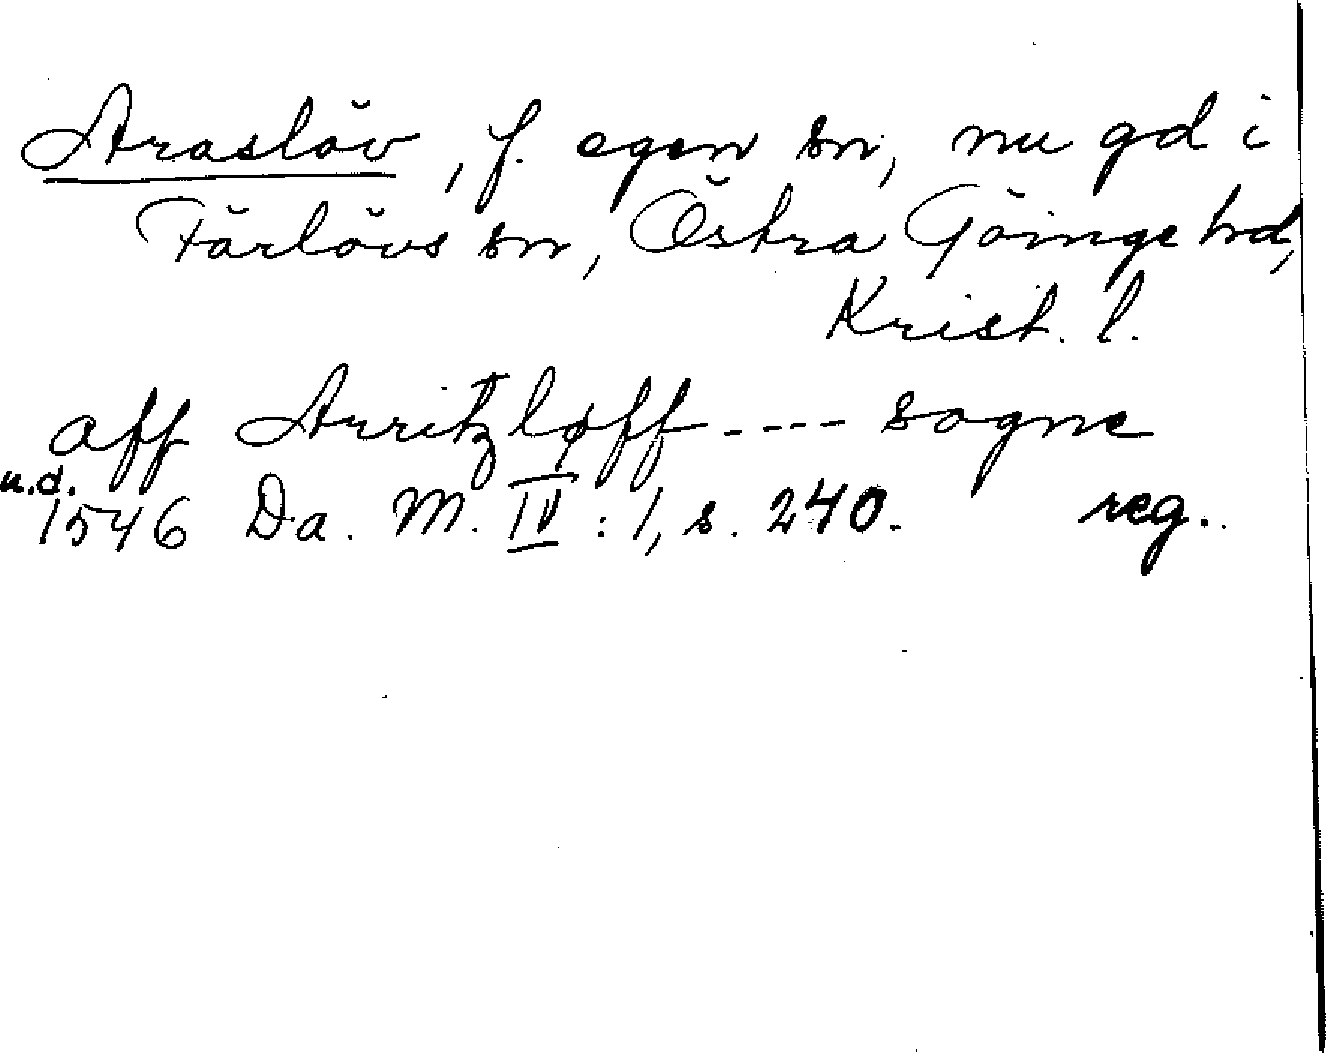 Araslöv, f. egen sn, nu gd i
Färlövs sn, Östra Göinge hd,
Krist. l.
aff Arritzløff ---- sogne
u.d.
1546 Da. M. IV : 1, s. 240. reg.